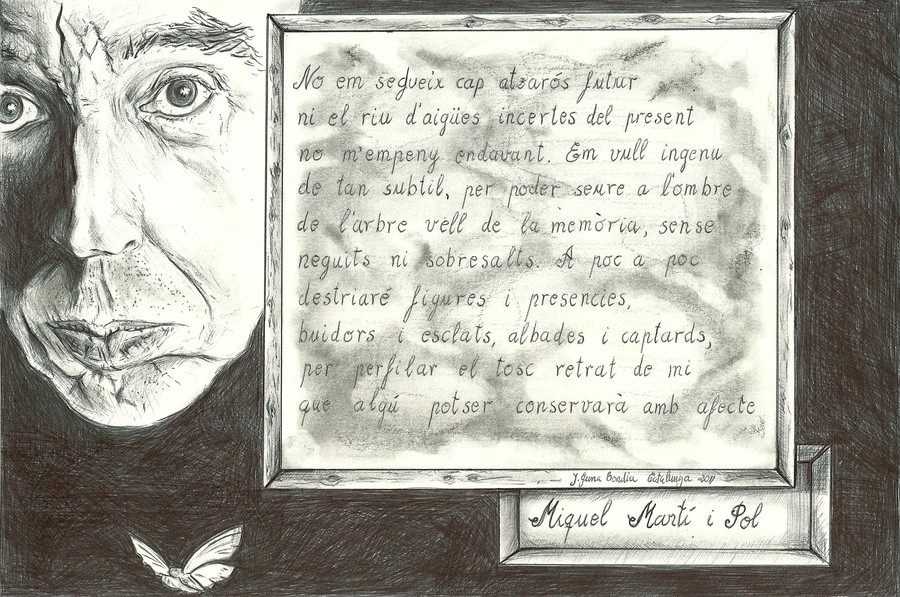 No em segueix cap atzarós futur
ni el riu d'aigües incertes del present
no m'empeny endavant. Em vull ingenu
de tan subtil, per poder seure a l'ombre
de l'arbre vell de la memòria, sense
neguits ni sobresalts. A poc a poc
destriaré figures i presencies,
buidors i esclats, albades i captards,
per perfilar el tosc retrat de mi
que algú potser conservarà amb afecte
Catalunya 2011
Miquel Martí i Pol